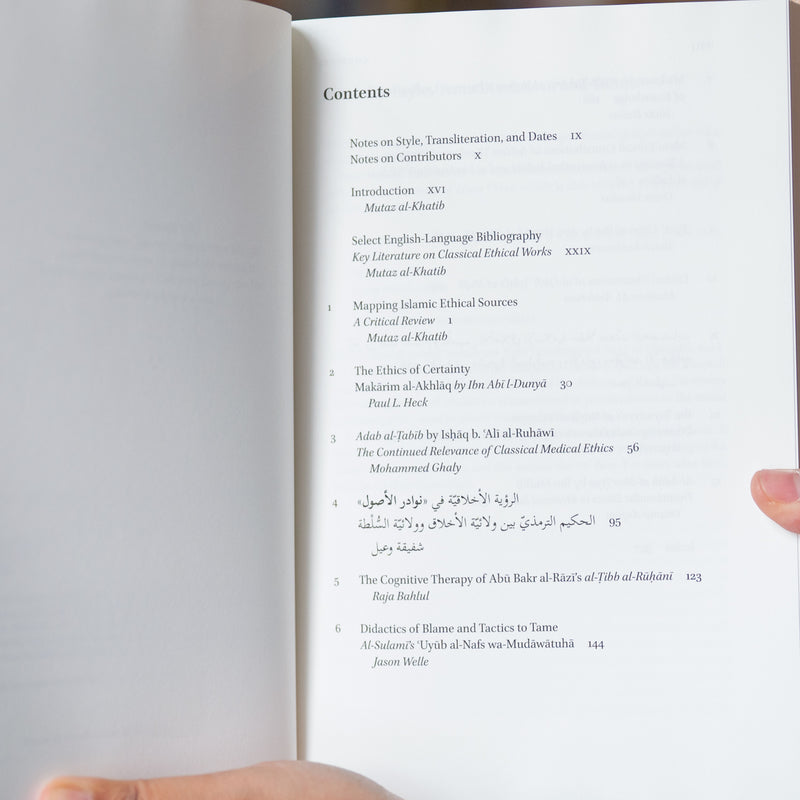 Contents
Notes on Style, Transliteration, and Dates IX
Notes on Contributors X
Introduction XVI
Mutaz al-Khatib
Select English-Language Bibliography
Key Literature on Classical Ethical Works XXIX
Mutaz al-Khatib
1 Mapping Islamic Ethical Sources
A Critical Review 1
Mutaz al-Khatib
2 The Ethics of Certainty
Makārim al-Akhlāq by Ibn Abī l-Dunyā 30
Paul L. Heck
3 Adab al-Ṭabīb by Isḥāq b. ʿAlī al-Ruhāwī
The Continued Relevance of Classical Medical Ethics 56
Mohammed Ghaly
4 الرؤية الأخلاقيّة في «نوادر الأصول»
الحكيم الترمذيّ بين ولائيّة الأخلاق وولائيّة السُّلطة 95
شفيقة وعيل
5 The Cognitive Therapy of Abū Bakr al-Rāzī’s al-Ṭibb al-Rūḥānī 123
Raja Bahlul
6 Didactics of Blame and Tactics to Tame
Al-Sulamī’s ʿUyūb al-Nafs wa-Mudāwātuhā 144
Jason Welle